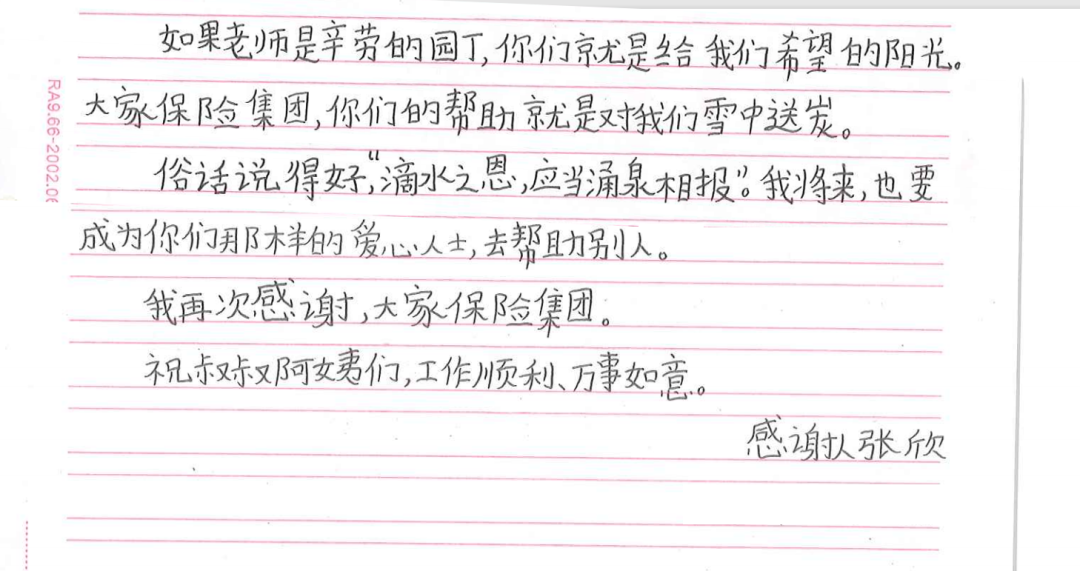 如果老师是辛劳的园丁,你们就是给我们希望的阳光。
大家保险集团,你们的帮助就是对我们雪中送炭。
俗话说得好,“滴水之恩,应当涌泉相报”。我将来,也要
成为你们那样的爱心人士,去帮助别人。
我再次感谢,大家保险集团。
祝叔叔阿姨们,工作顺利、万事如意。
感谢人张欣
RA9.66-2002.06